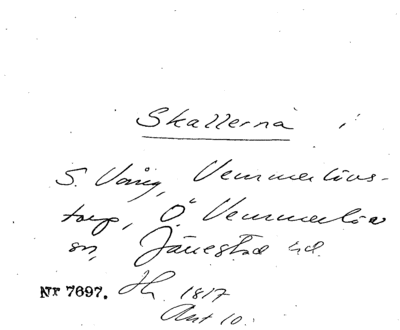 Skallerna i
S. Vång, Vemmerlövs-
torp, Ö. Vemmerlöv
sn, Järrestad hd.
Nr 7697. Jh. 1817
Akt 10.